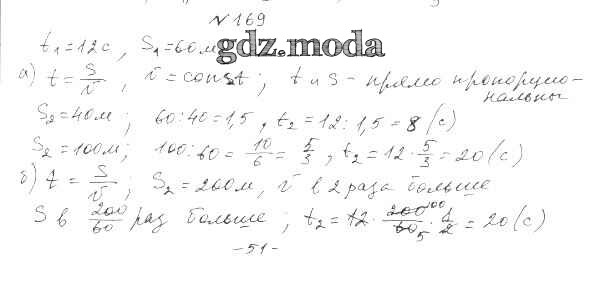 №169
t₁=12с, S₁=60м
gdz.moda
а) t = S/v, v = const; t и s - прямо пропорцио-
нальны
S₂=40м; 60:40=1,5, t₂=12:1,5=8 (с)
S₂=100м; 100:60=10/6=5/3, t₂=12·5/3=20(с)
б) t = S/v; S₂=200м, v в 2 раза больше
S в 200/60 раз больше; t₂=12·200/60·1/2=20(с)
-51-